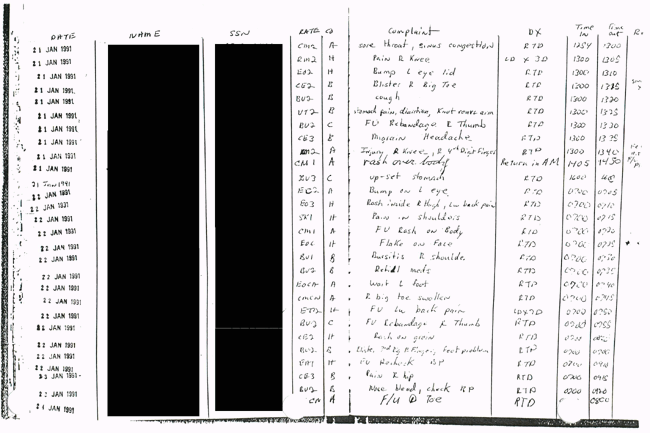 DATE NAME SSN RATE CO Complaint DX Time In Time out Rx
21 JAN 1991 CM2 A sore throat, sinus congestion RTD 1254 1300
21 JAN 1991 RM2 H Pain R Knee LD x 3D 1300 1305
21 JAN 1991 EO2 H Bump L eye lid RTD 1300 1310
21 JAN 1991 CE2 B Blister R Big Toe RTD 1300 1315
21 JAN 1991 BU2 B cough RTD 1300 1320
21 JAN 1991 UT2 B stomach pain, diarrhea, Knot arm RTD 1300 1325
21 JAN 1991 BU2 C FU Rebandage R Thumb RTD 1300 1330
21 JAN 1991 CE3 B Migrain Headache RTD 1300 1335
21 JAN 1991 A Injury R Knee, R 4th Digit Finger RTD 1300 1340
21 JAN 1991 CM1 A rash over body Return in AM 1405 1430
21 Jan 1991 BU3 C up-set stomach RTD 1600
22 JAN 1991 EO2 A Bump on L eye RTD 0700 0705
22 JAN 1991 EO3 H Rash inside R thigh, Lw back pain RTD 0700 0710
22 JAN 1991 SK1 H Pain in shoulders RTD 0700 0715
22 JAN 1991 CM1 A FU Rash on Body RTD 0700 0720
22 JAN 1991 EO2 H Flake on Face RTD 0700
22 JAN 1991 BU1 B Bursitis R shoulder RTD 0700 0730
22 JAN 1991 BU2 B Refill meds RTD 0700 0735
22 JAN 1991 EOCA A wart L foot RTD 0700 0740
22 JAN 1991 CMCN A R big toe swollen RTD 0700 0745
22 JAN 1991 H FU Lw back pain LDx3D 0700 0750
22 JAN 1991 BU2 C FU Rebandage R Thumb RTD 0700 0755
22 JAN 1991 CE2 H Rash on groin RTD 0700
22 JAN 1991 BU2 B Finger, foot problem RTD 0700
22 JAN 1991 H FU Recheck BP RTD 0700 0810
22 JAN 1991 CE3 B Pain R hip RTD 0700 0815
22 JAN 1991 BU2 B Nose bleed, check BP RTD 0700
21 JAN 1991 CN A F/U @ Toe RTD 0800